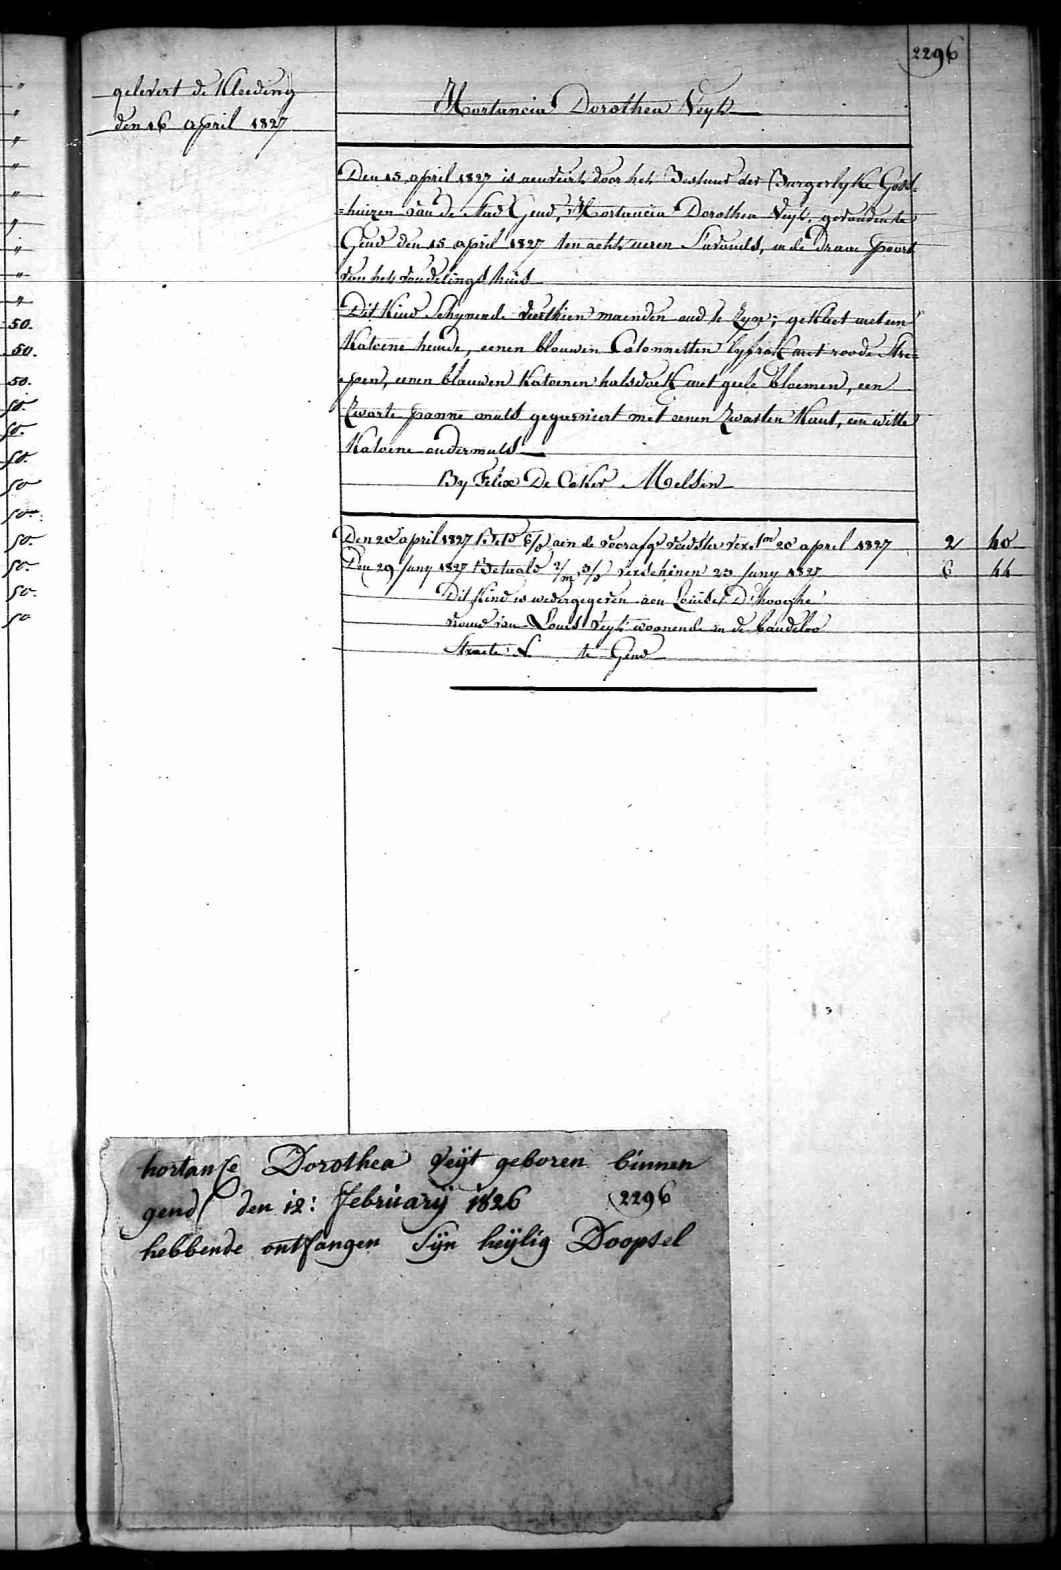 2296
gelevert de Kleeding
den 16 april 1827
Hortancia Dorothea Veyt
Den 15 april 1827 is aenveirt door het Bestuur der Burgerlyke Gods-
=huizen van de Stad Gend, Hortancia Dorothea Veyt, gevonden te
Gend den 15 april 1827 ten acht ueren S'avonds, in de Draeve poort
van het vondelings huis
Dit Kind Schynende veerthien maenden oud te zyn; gekleet met een
Katoene hemde, eenen blauwen Colonnetten lyfrok met roode Stre=
=pen, eenen blauwen Katoenen halsdoek met geele bloemen, een
Zwarte panne muts gegarniert met eenen Zwarten Kant, een witte
Katoene ondermuts
By Felix De Coker Melsen
Den 20 april 1827 aen de 20 april 1827 2 40
Den 29 Juny 1827 Betaald verschenen 23 Juny 1827 6 44
Dit Kind is wedergegeven aen Louise D'hooghe
vrouw van Louis Veyt woonende in de baudeloo
Straete te Gend
"
"
"
"
"
"
"
"
"
50.
50.
50.
50.
50.
50.
50
50
50.
50.
50.
50
hortanse Dorothea Veÿt geboren binnen
gend den 12: februarÿ 1826 2296
hebbende ontfangen Sÿn heÿlig Doopsel